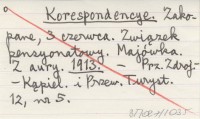 Korespondencye. Zako-
pane, 3 czerwca. Związek
pensyonatowy. Majówka.
Z aury. 1913. — Prz. Zdroj-
-Kąpiel. i Przew. Turyst.
12, nr 5.